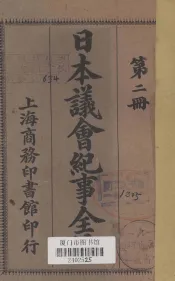 第二冊
日本議會紀事全
上海商務印書館印行
厦门市图书馆